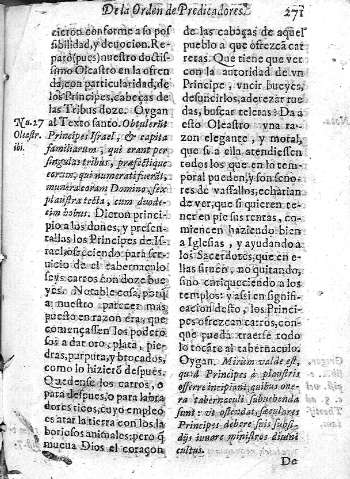 De la Orden de Predicadores. 271
cieron conforme a su po
sibilidad, y deuocion. Re-
paró (pues) nuestro doctis-
simo Oleastro en la ofren
da, con particularidad, de
los Principes, cabeças de
las Tribus doze. Oygan
Nu. 27
Oleastr.
ibi.
al Texto santo. Obtulerūt
Principes Israel, & capita
familiarum, qui erant per
singulas tribus, præfectique
eorum, qui numerati fuerāt,
munera coram Domino, sex
plaustra tecta, cum duode-
cim bobus. Dieron princi-
pio a los dones, y presen-
tallas los Principes de Is-
rael, ofreciendo para ser-
uicio de el tabernaculo
seys carros con doze bue
yes. Notable cosa, porq̃
al nuestro parecer mas
puesto en razon era, que
començassen los podero
sos a dar oro, plata, pie-
dras, purpura, y brocados,
como lo hizierō despues.
Quedense los carros, o
para despues, o para labra
dores ricos, cuyo empleo
es atar la tierra con los la
boriosos animales; pero q̃
mueua Dios el coraçon
de las cabaças de aquel
pueblo a que ofrezcā car
retas. Que tiene que ver
con la autoridad de vn
Principe, vncir bueyes,
desuncirlos, adereçar rue
das, buscar teleras? Da a
esto Oleastro vna ra-
zon elegante, y moral,
que si a ella atendiessen
todos los que en lo tem
poral pueden, y son seño-
res de vassallos, echarian
de ver, que si quieren te-
ner en pie sus rentas, co-
miencen haziendo bien
a Iglesias, y ayudando a
los Sacerdotes, que en e-
llas siruen, no quitando,
sino enriqueciendo a los
templos: y assi en signifi-
cacion desto, los Princi-
pes ofrezcan carros, con-
que pueda traerse todo
lo tocāte al tabernaculo.
Oygan. Mirùm valde est,
quòd Principes à plaustris
offerre incipiant, quibus one-
ra tabernaculi subuehenda
sunt: vt ostendat, sæculares
Principes debere suis subsi-
dijs iuuare ministros diuini
cultus.
De